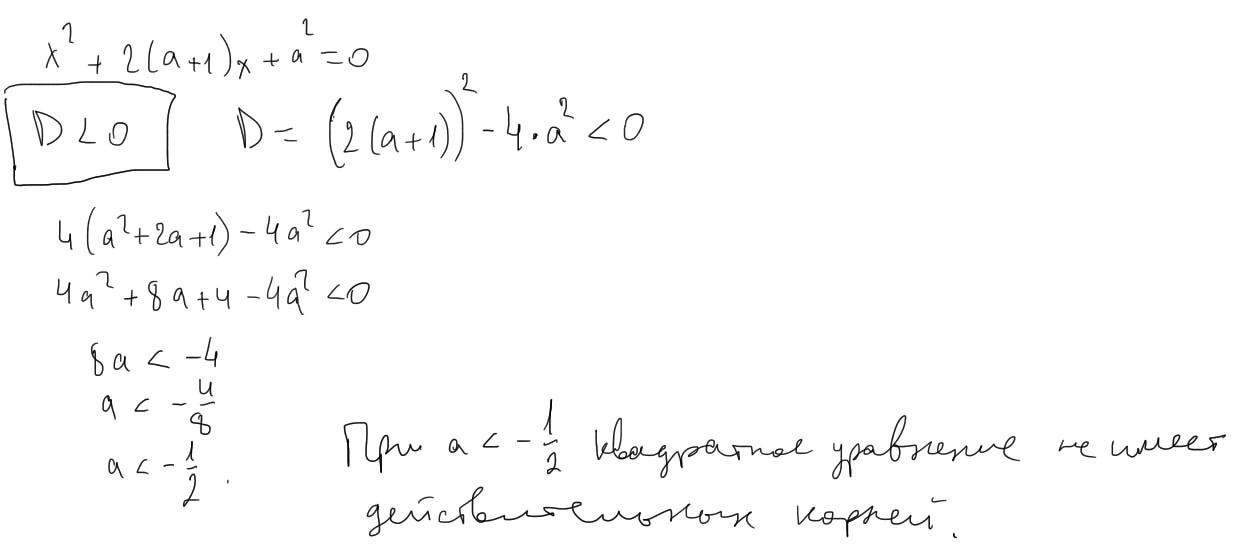 x² + 2(a+1)x + a² = 0
D < 0 D = (2(a+1))² - 4·a² < 0
4(a²+2a+1) - 4a² < 0
4a² + 8a + 4 - 4a² < 0
8a < -4
a < -4/8
a < -1/2.
При a < -1/2 квадратное уравнение не имеет
действительных корней.